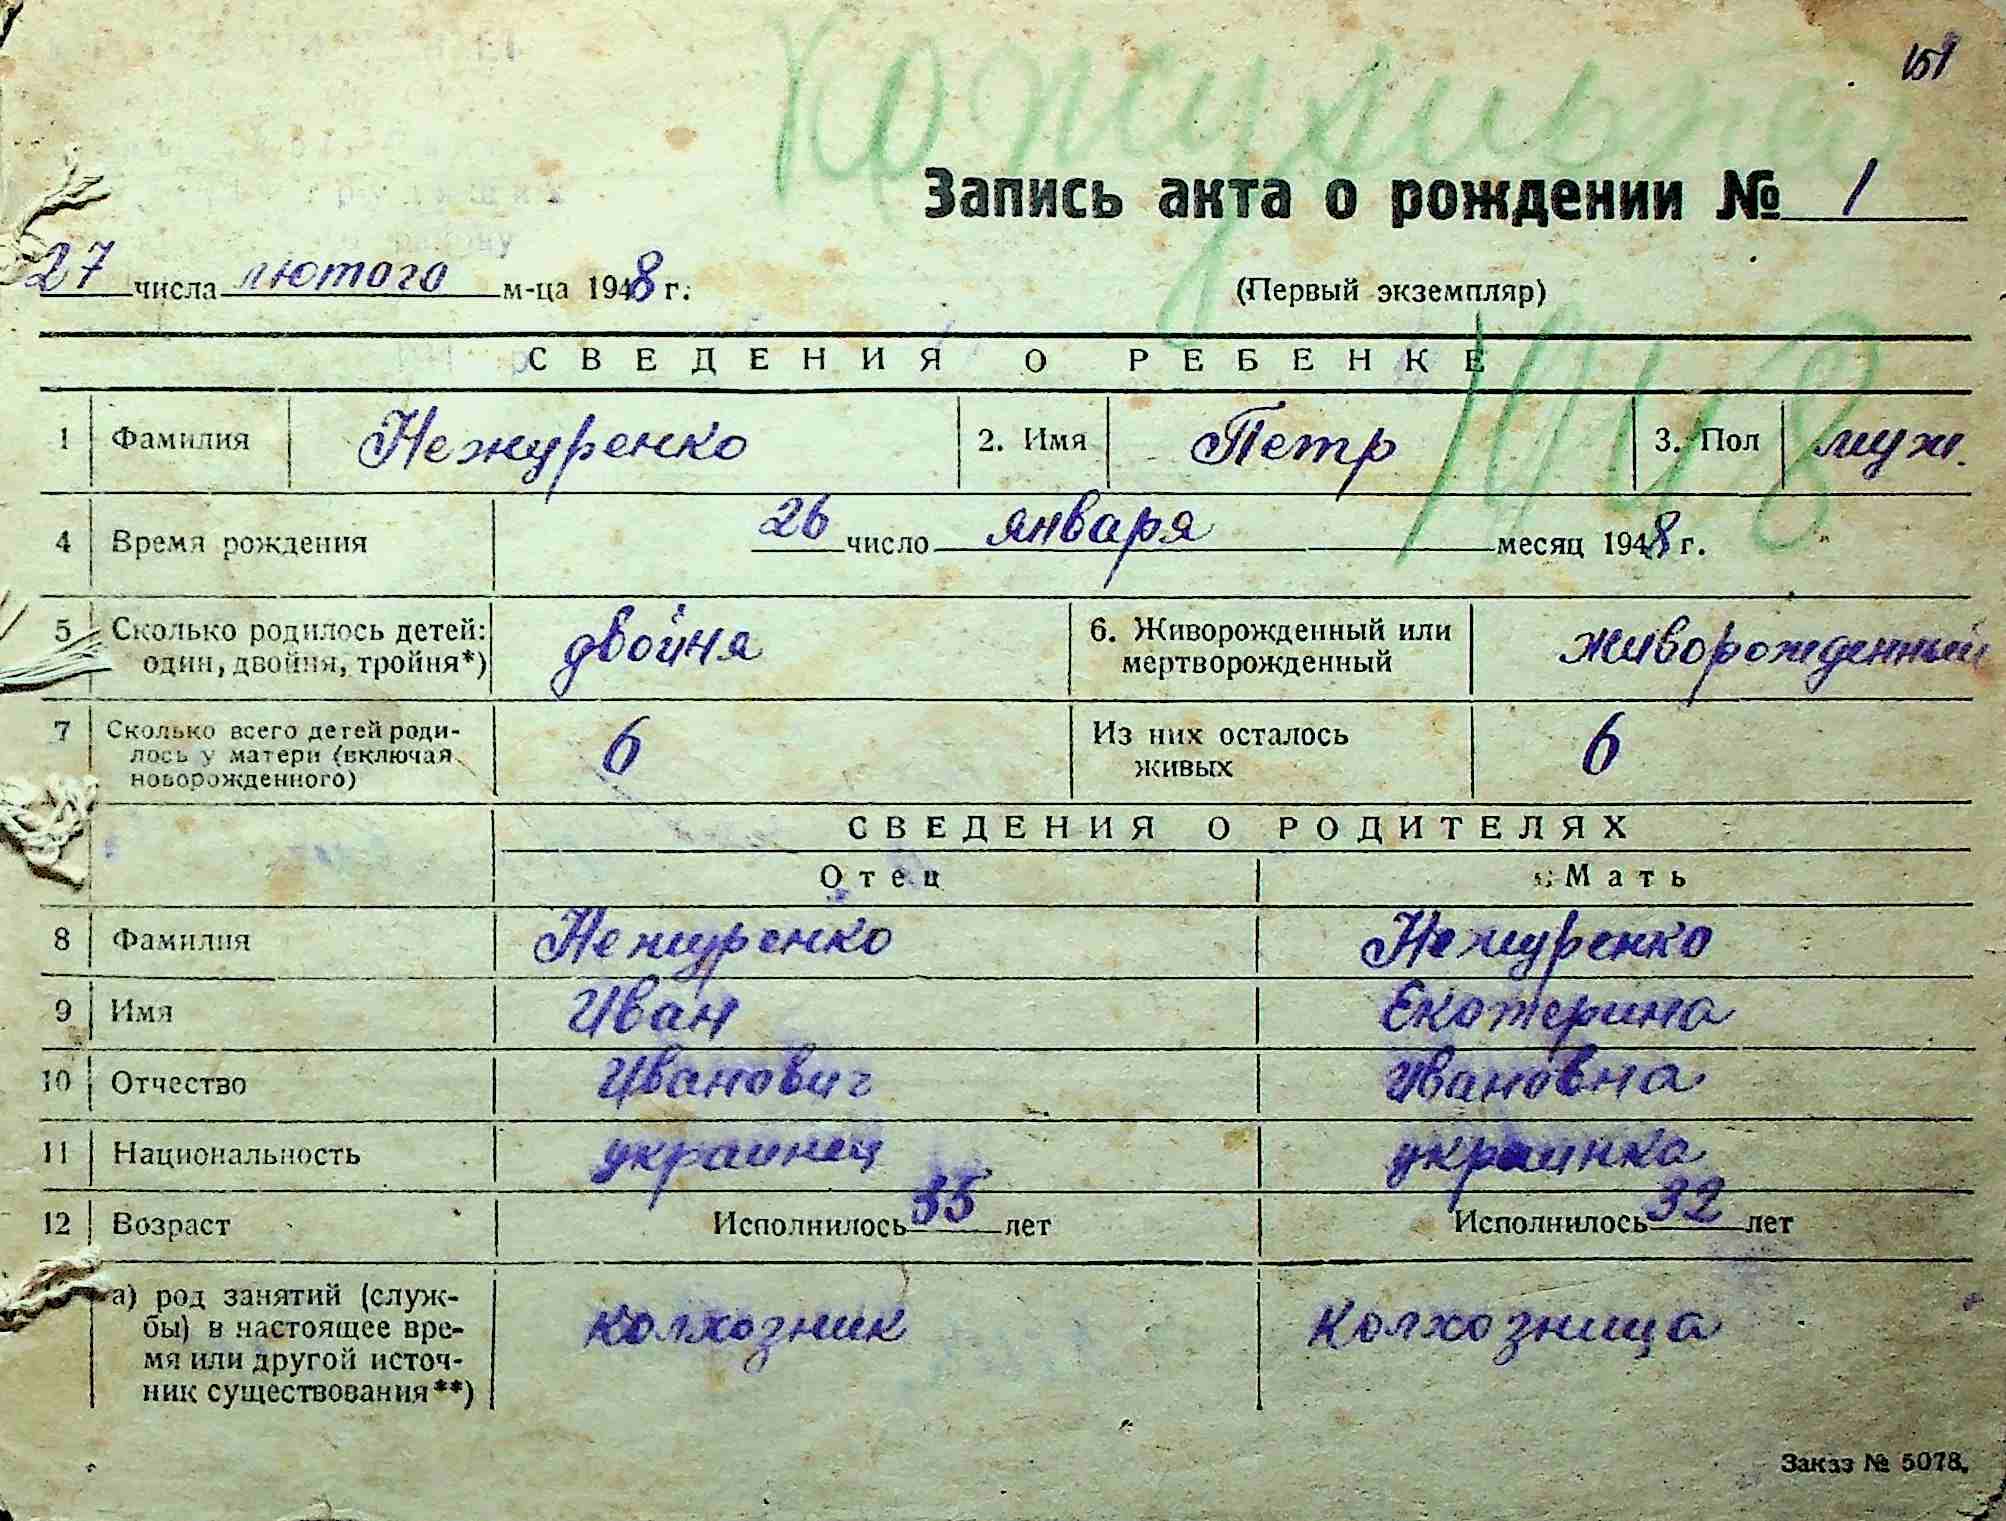 151
Кожулька
Запись акта о рождении № 1
27 числа лютого м-ца 1948 г.
(Первый экземпляр)
1948
СВЕДЕНИЯ О РЕБЕНКЕ
1 Фамилия Нежуренко 2. Имя Петр 3. Пол муж.
4 Время рождения 26 число января месяц 1948 г.
5 Сколько родилось детей: один, двойня, тройня*) двойня 6. Живорожденный или мертворожденный живорожденный
7 Сколько всего детей роди-
лось у матери (включая
новорожденного) 6 Из них осталось живых 6
СВЕДЕНИЯ О РОДИТЕЛЯХ
Отец Мать
8 Фамилия Нежуренко Нежуренко
9 Имя Иван Екатерина
10 Отчество Иванович Ивановна
11 Национальность украинец украинка
12 Возраст Исполнилось 35 лет Исполнилось 32 лет
а) род занятий (служ-
бы) в настоящее вре-
мя или другой источ-
ник существования**) колхозник колхозница
Заказ № 5078.